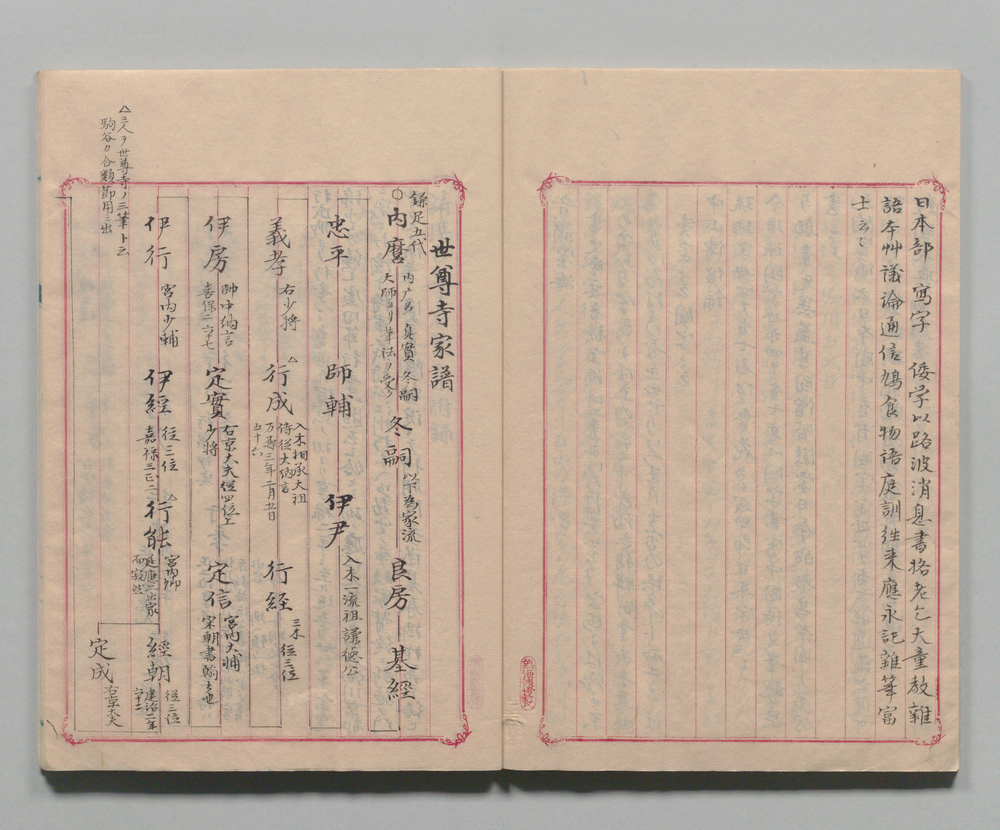 日本部 寫字 倭学以路波消息書格老乞大童教雜
語本艸議論通信鳩食物語庭訓往来應永記雜筆富
士云々
世尊寺家譜
鎌足五代
○内麿
内广公真實冬嗣
大師ヨリ筆法ヲ受ク
冬嗣
以下為家流
良房
基經
忠平
師輔
伊尹
入木一流祖謙徳公
義孝
右少将
△行成
入木相承大祖
侍従大納言
万寿三年二月五日
五十六
行経
三木
従三位
伊房
帥中納言
喜保二六七
定實
右京大夫従四位上
少将
定信
宮内大輔
宋朝書翰之也
伊行
宮内少輔
伊經
従三位
嘉禄三正二
△行能
宮内卿
經朝
従三位
建治二年
定成
右京大夫
△三人ヲ世尊寺ノ三筆ト云
駒谷カ合類節用ニ出